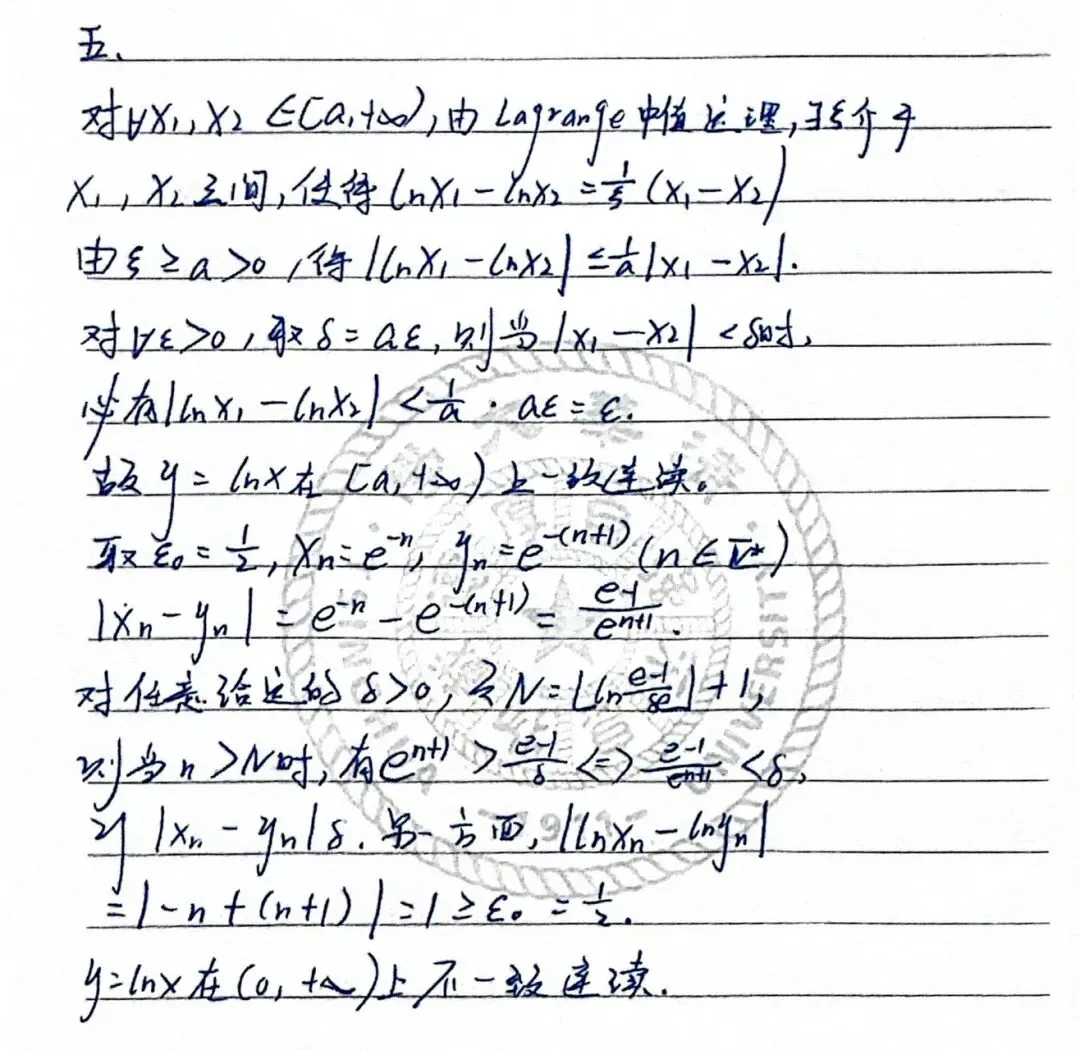 五、
对∀x₁,x₂∈[a,+∞),由Lagrange中值定理,∃ξ介于
x₁,x₂之间,使得lnx₁-lnx₂=1/ξ(x₁-x₂)
由ξ≥a>0,得|lnx₁-lnx₂|≤1/a|x₁-x₂|.
对∀ε>0,取δ=aε,则当|x₁-x₂|<δ时,
必有|lnx₁-lnx₂|<1/a·aε=ε.
故y=lnx在[a,+∞)上一致连续。
取ε₀=1/2,xₙ=e⁻ⁿ,yₙ=e^{-(n+1)}(n∈ℤ*)
|xₙ-yₙ|=e⁻ⁿ-e^{-(n+1)}=(e-1)/e^{n+1}.
对任意给定的δ>0,令N=⌊ln(e-1)/(δe)⌋+1,
则当n>N时,有e^{n+1}>(e-1)/δ<=>(e-1)/e^{n+1}<δ,
则|xₙ-yₙ|δ.另一方面,|lnxₙ-lnyₙ|
=|-n+(n+1)|=1≥ε₀=1/2.
y=lnx在(0,+∞)上不一致连续.
UNIVERSITY